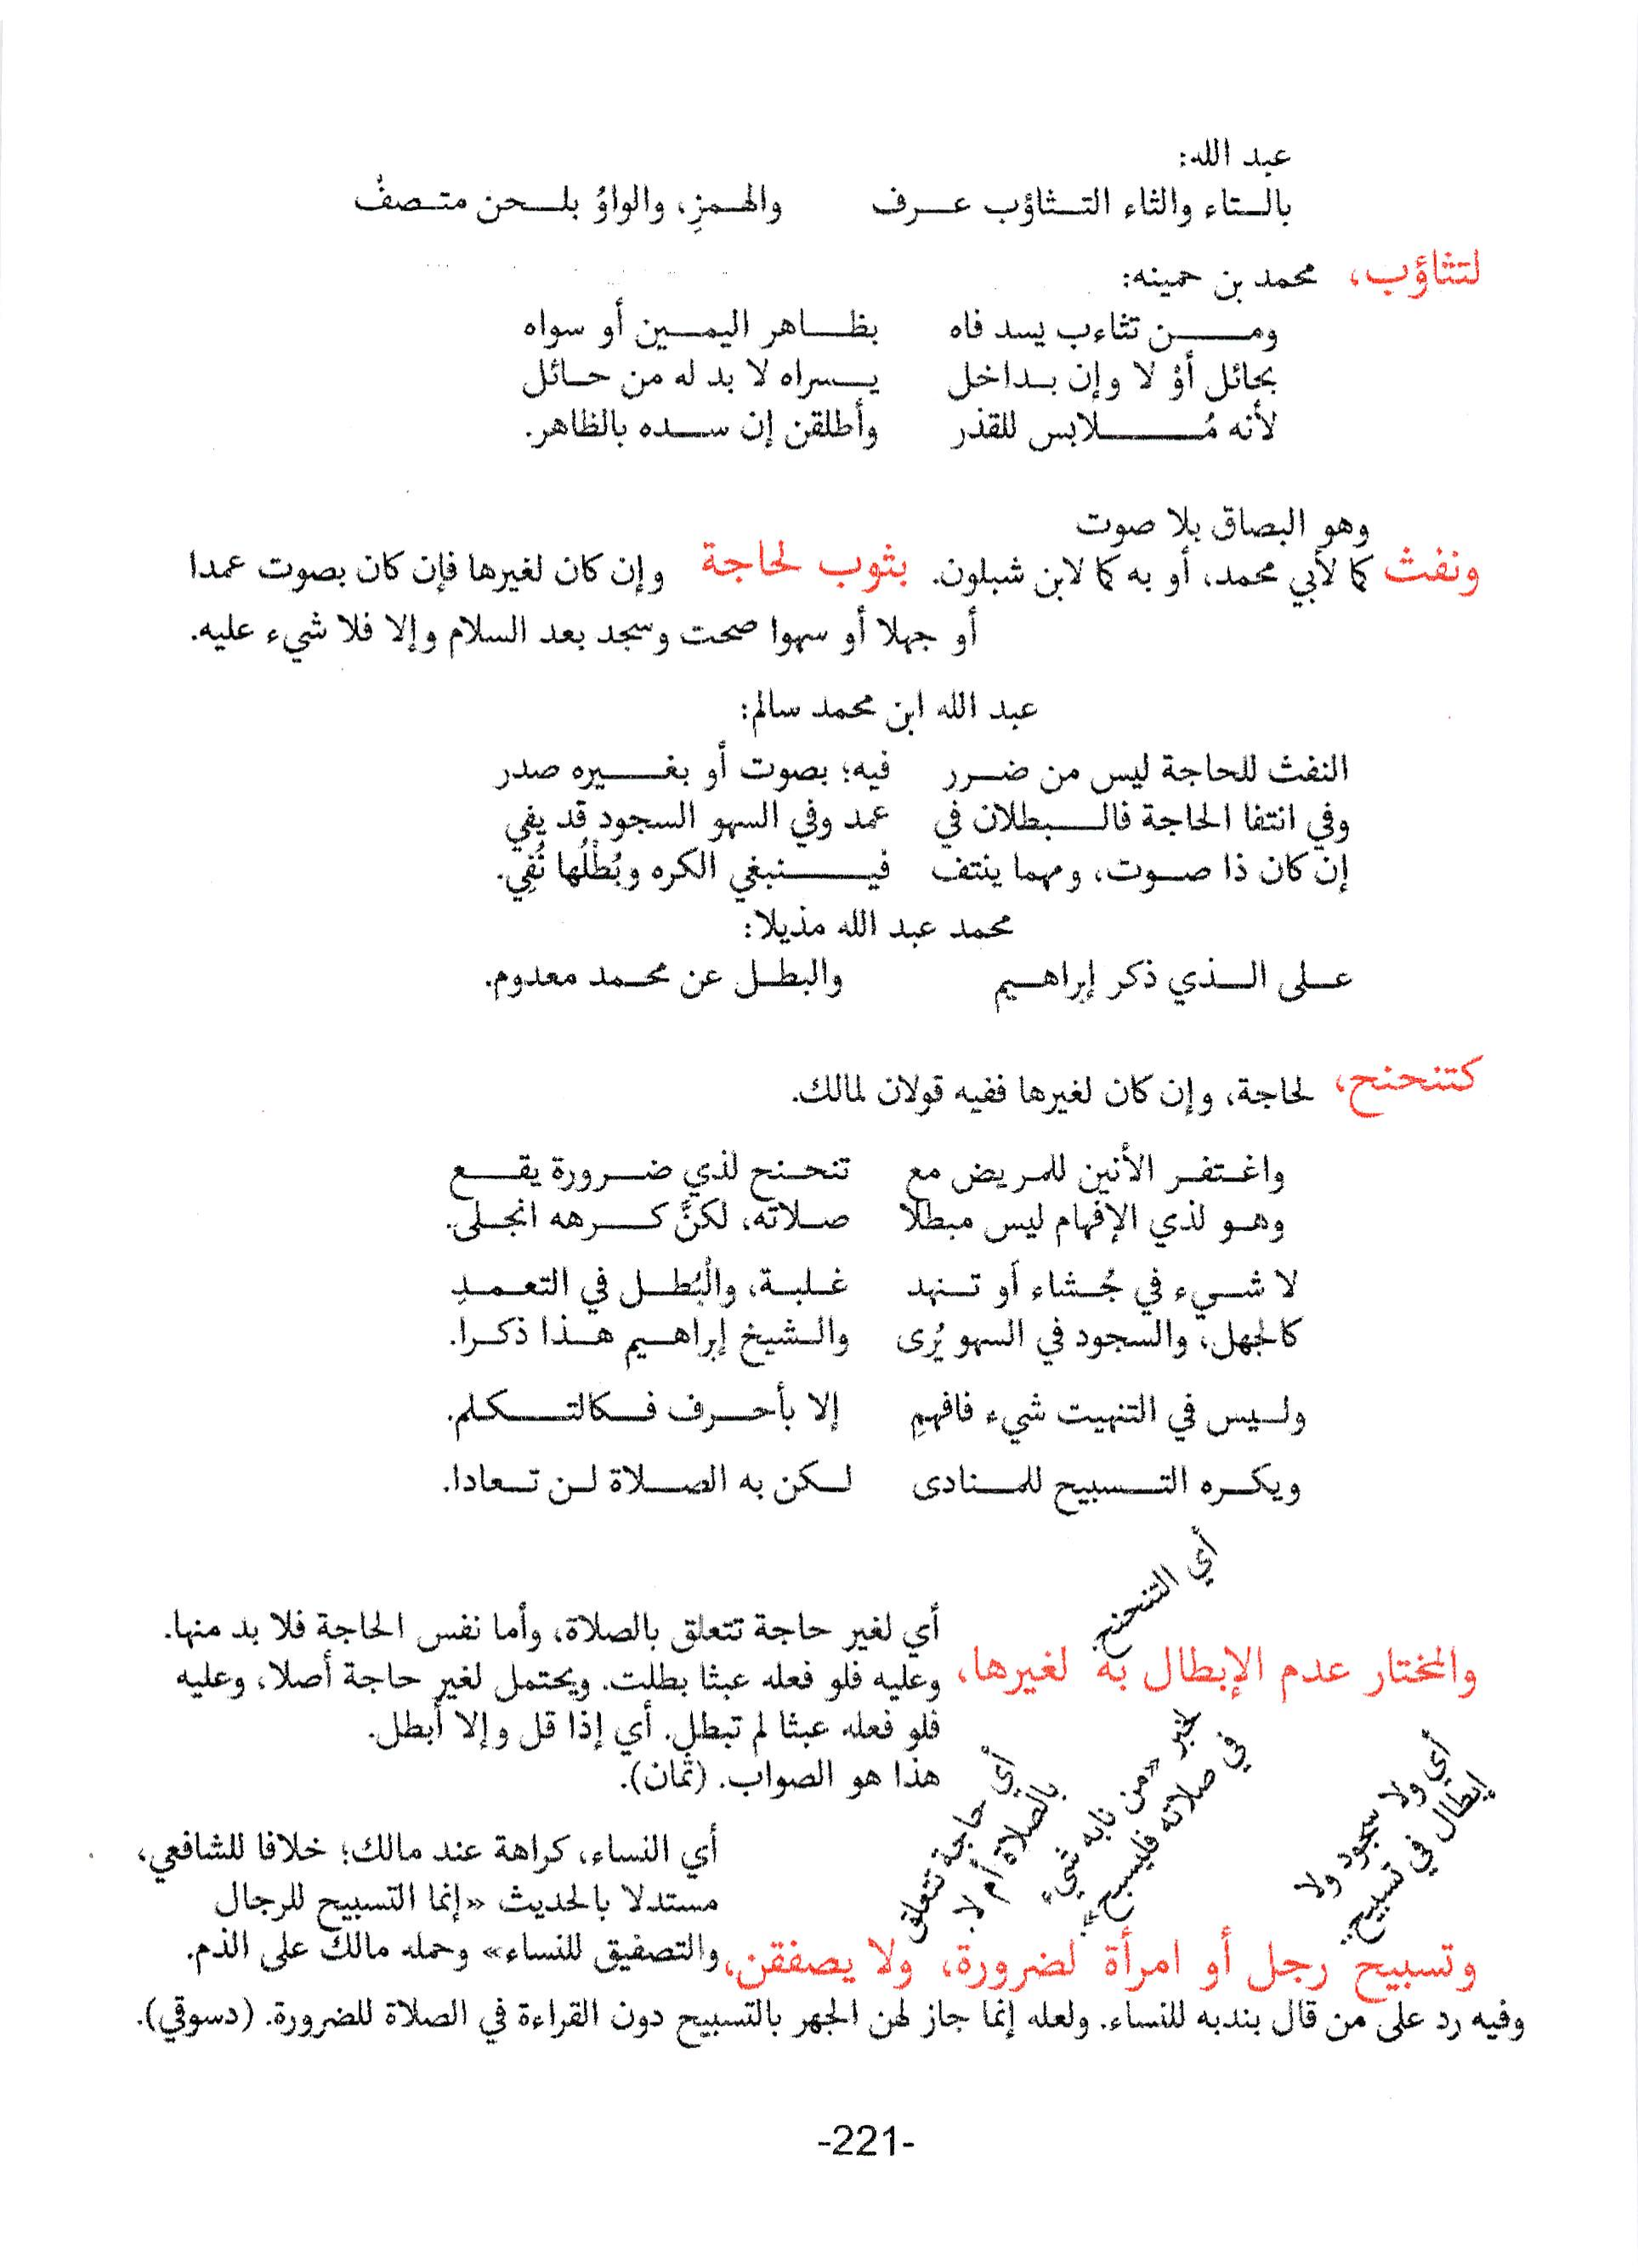 عبد الله:
بالتاء والثاء التثاؤب عرف والهمزِ، والواوُ بلحن متصفْ
لتثاؤب، محمد بن حمينه:
ومن تثاءب يسد فاه بظاهر اليمين أو سواه
بحائل أوْ لا وإن بداخل يسراه لا بد له من حائل
لأنه مُلابس للقذر وأطلقن إن سده بالظاهر.
وهو البصاق بلا صوت
ونفث كما لأبي محمد، أو به كما لابن شبلون. بثوب لحاجة وإن كان لغيرها فإن كان بصوت عمدا
أو جهلا أو سهوا صحت وسجد بعد السلام وإلا فلا شيء عليه.
عبد الله ابن محمد سالم:
النفث للحاجة ليس من ضرر فيه؛ بصوت أو بغيره صدر
وفي انتفا الحاجة فالبطلان في عمد وفي السهو السجود قد يفي
إن كان ذا صوت، ومهما ينتف فينبغي الكره وبُطْلُها نُفِي.
محمد عبد الله مذيلا:
على الذي ذكر إبراهيم والبطل عن محمد معدوم.
كتنحنح، لحاجة، وإن كان لغيرها ففيه قولان لمالك.
واغتفر الأنين للمريض مع تنحنح لذي ضرورة يقع
وهو لذي الإفهام ليس مبطلا صلاته، لكنَّ كرهه انجلى.
لا شيء في جُشاء أو تنهد غلبة، والْبُطل في التعمدِ
كالجهل، والسجود في السهو يُرى والشيخ إبراهيم هذا ذكرا.
وليس في التنهيت شيء فافهمِ إلا بأحرف فكالتكلم.
ويكره التسبيح للمنادى لكن به الصلاة لن تعادا.
أي التنحنح.
أي لغير حاجة تتعلق بالصلاة، وأما نفس الحاجة فلا بد منها.
والمختار عدم الإبطال به لغيرها، وعليه فلو فعله عبثا بطلت. ويحتمل لغير حاجة أصلا، وعليه
فلو فعله عبثا لم تبطل. أي إذا قل وإلا أبطل.
هذا هو الصواب. (تمان).
أي ولا سجود ولا
إبطال في تسبيح.
لخبر «من نابه شيء
في صلاته فليسبح»
أي حاجة تتعلق
بالصلاة أم لا.
أي النساء، كراهة عند مالك؛ خلافا للشافعي،
مستدلا بالحديث «إنما التسبيح للرجال
وتسبيح رجل أو امرأة لضرورة، ولا يصفقن، والتصفيق للنساء» وحمله مالك على الذم.
وفيه رد على من قال بندبه للنساء. ولعله إنما جاز لهن الجهر بالتسبيح دون القراءة في الصلاة للضرورة. (دسوقي).
-221-